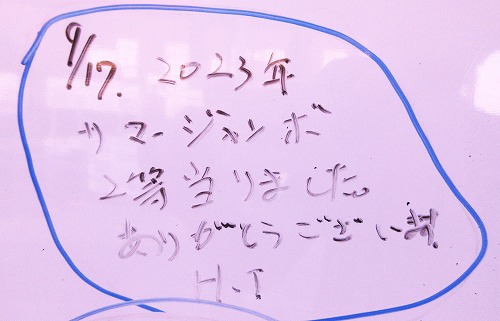 9/17. 2023年
サマージャンボ
2等当りました。
ありがとうございます
H.I